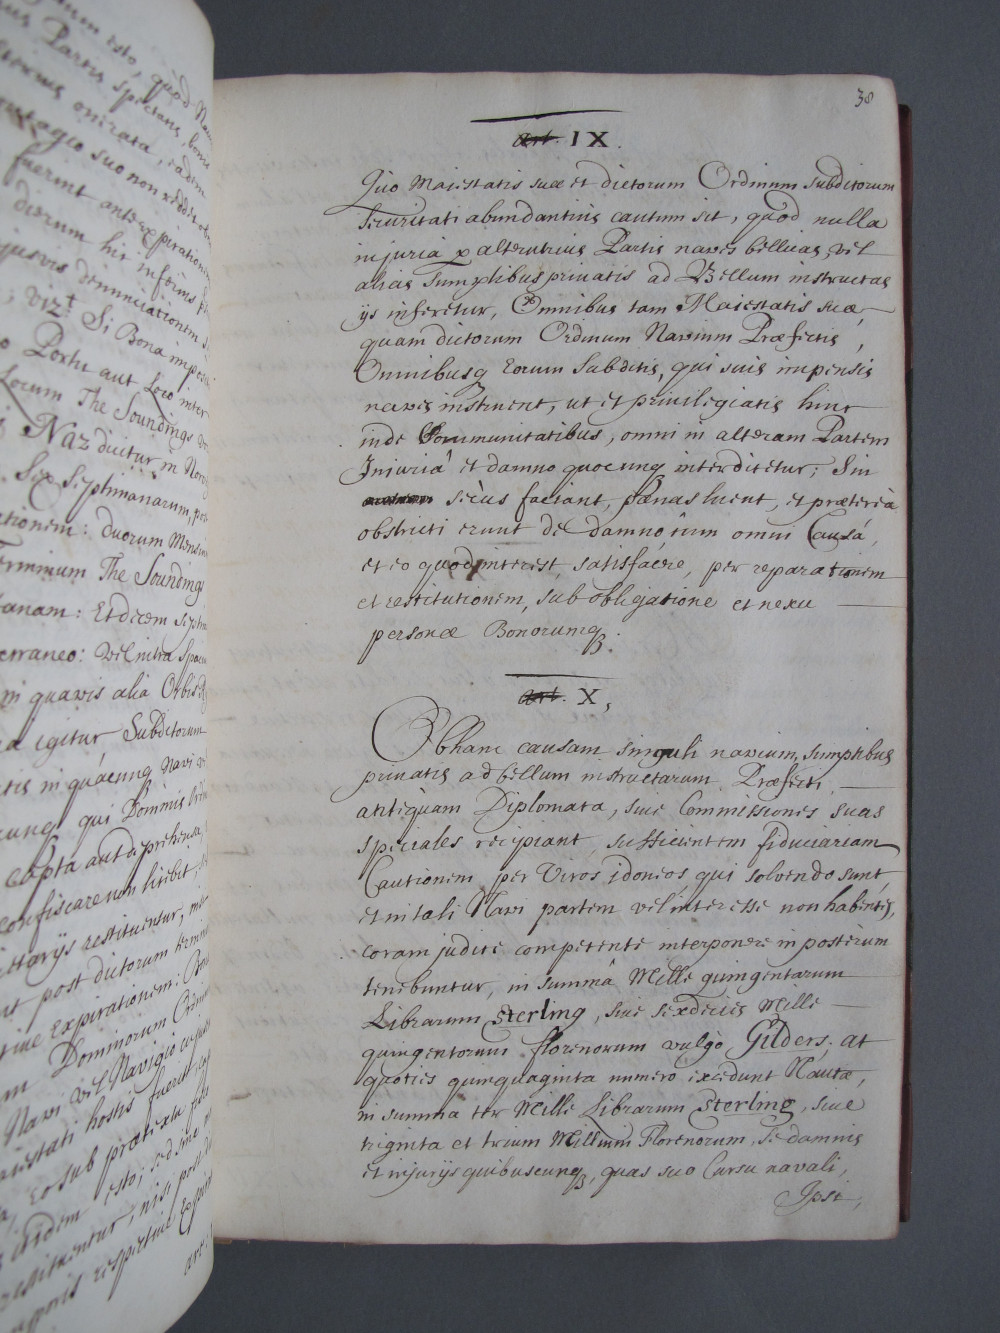 esto, quòd Nav
Partis spectans, bonis
onerata, eadem
suo non reddet
fuerint ante expirationem
dierum his infimis
quovis denunciationem
vizt. Si Bona
Portu aut Loco inter
Locum The Soundings
Naz dicitur in Norv
Sex Septimanarum, post
ationem: duorum Mensiu
Terminum The Soundings
Et decem Septim
erraneo: Vel intra Spatiu
in quavis alia Orbis
igitur Subditorum
in quâcunq Navi
qui Dominis
Capta aut deprehensa
confiscare non licebit
restituentur,
post dictorum
Expirationem: Bon
Dominorum Ordin
Navi vel Navigio cujus
hostis fuerint
sub prætextu
itidem esto; sed sine
restituentur, nisi
temporis respective
art:
38
art. IX.
Quo Maiestatis suæ et dictorum Ordinum Subditorum
securitati abundantius cautum sit, quòd nulla
injuria p alterutrius Partis naves bellicas, vel
alias Sumptibus privatis ad Bellum instructas
ijs inferetur, Omnibus tam Maiestatis suæ,
quam dictorum Ordinum Navium Præfectis,
Omnibusq eorum Subditis, qui suis impensis
naves instruent, ut et privilegiatis hinc
inde Communitatibus, omni in alteram Partem
Injuriâ et damno quocunq interdicetur; Sin
secùs faciant, pœnas luent, et prætereà
obstricti erunt de damno cum omni Causâ,
et eo quod interest, satisfacere, per reparationem
et restitutionem, sub obligatione et nexu
personæ Bonorumq.
art. X,
Ob hanc causam singuli navium, sumptibus
privatis ad bellum instructarum Præfecti,
antequam Diplomata, sive Commissiones suas
speciales recipiant, sufficientem fiduciariam
Cautionem per Viros idoneos, qui solvendo sunt,
et in tali Navi partem vel interesse non habentes,
coram judice competente interponere in posterùm
tenebuntur, in summâ Mille quingentarum
Librarum Sterling, sive sexdecies Mille
quingentorum florenorum vulgò Gilders; at
quoties quinquaginta numero excedunt Nautæ,
in summa ter Mille Librarum Sterling, sive
triginta et trium Millium Florenorum, se damnis
et injurijs quibuscunq, quas suo Cursu navali,
Ipsi,